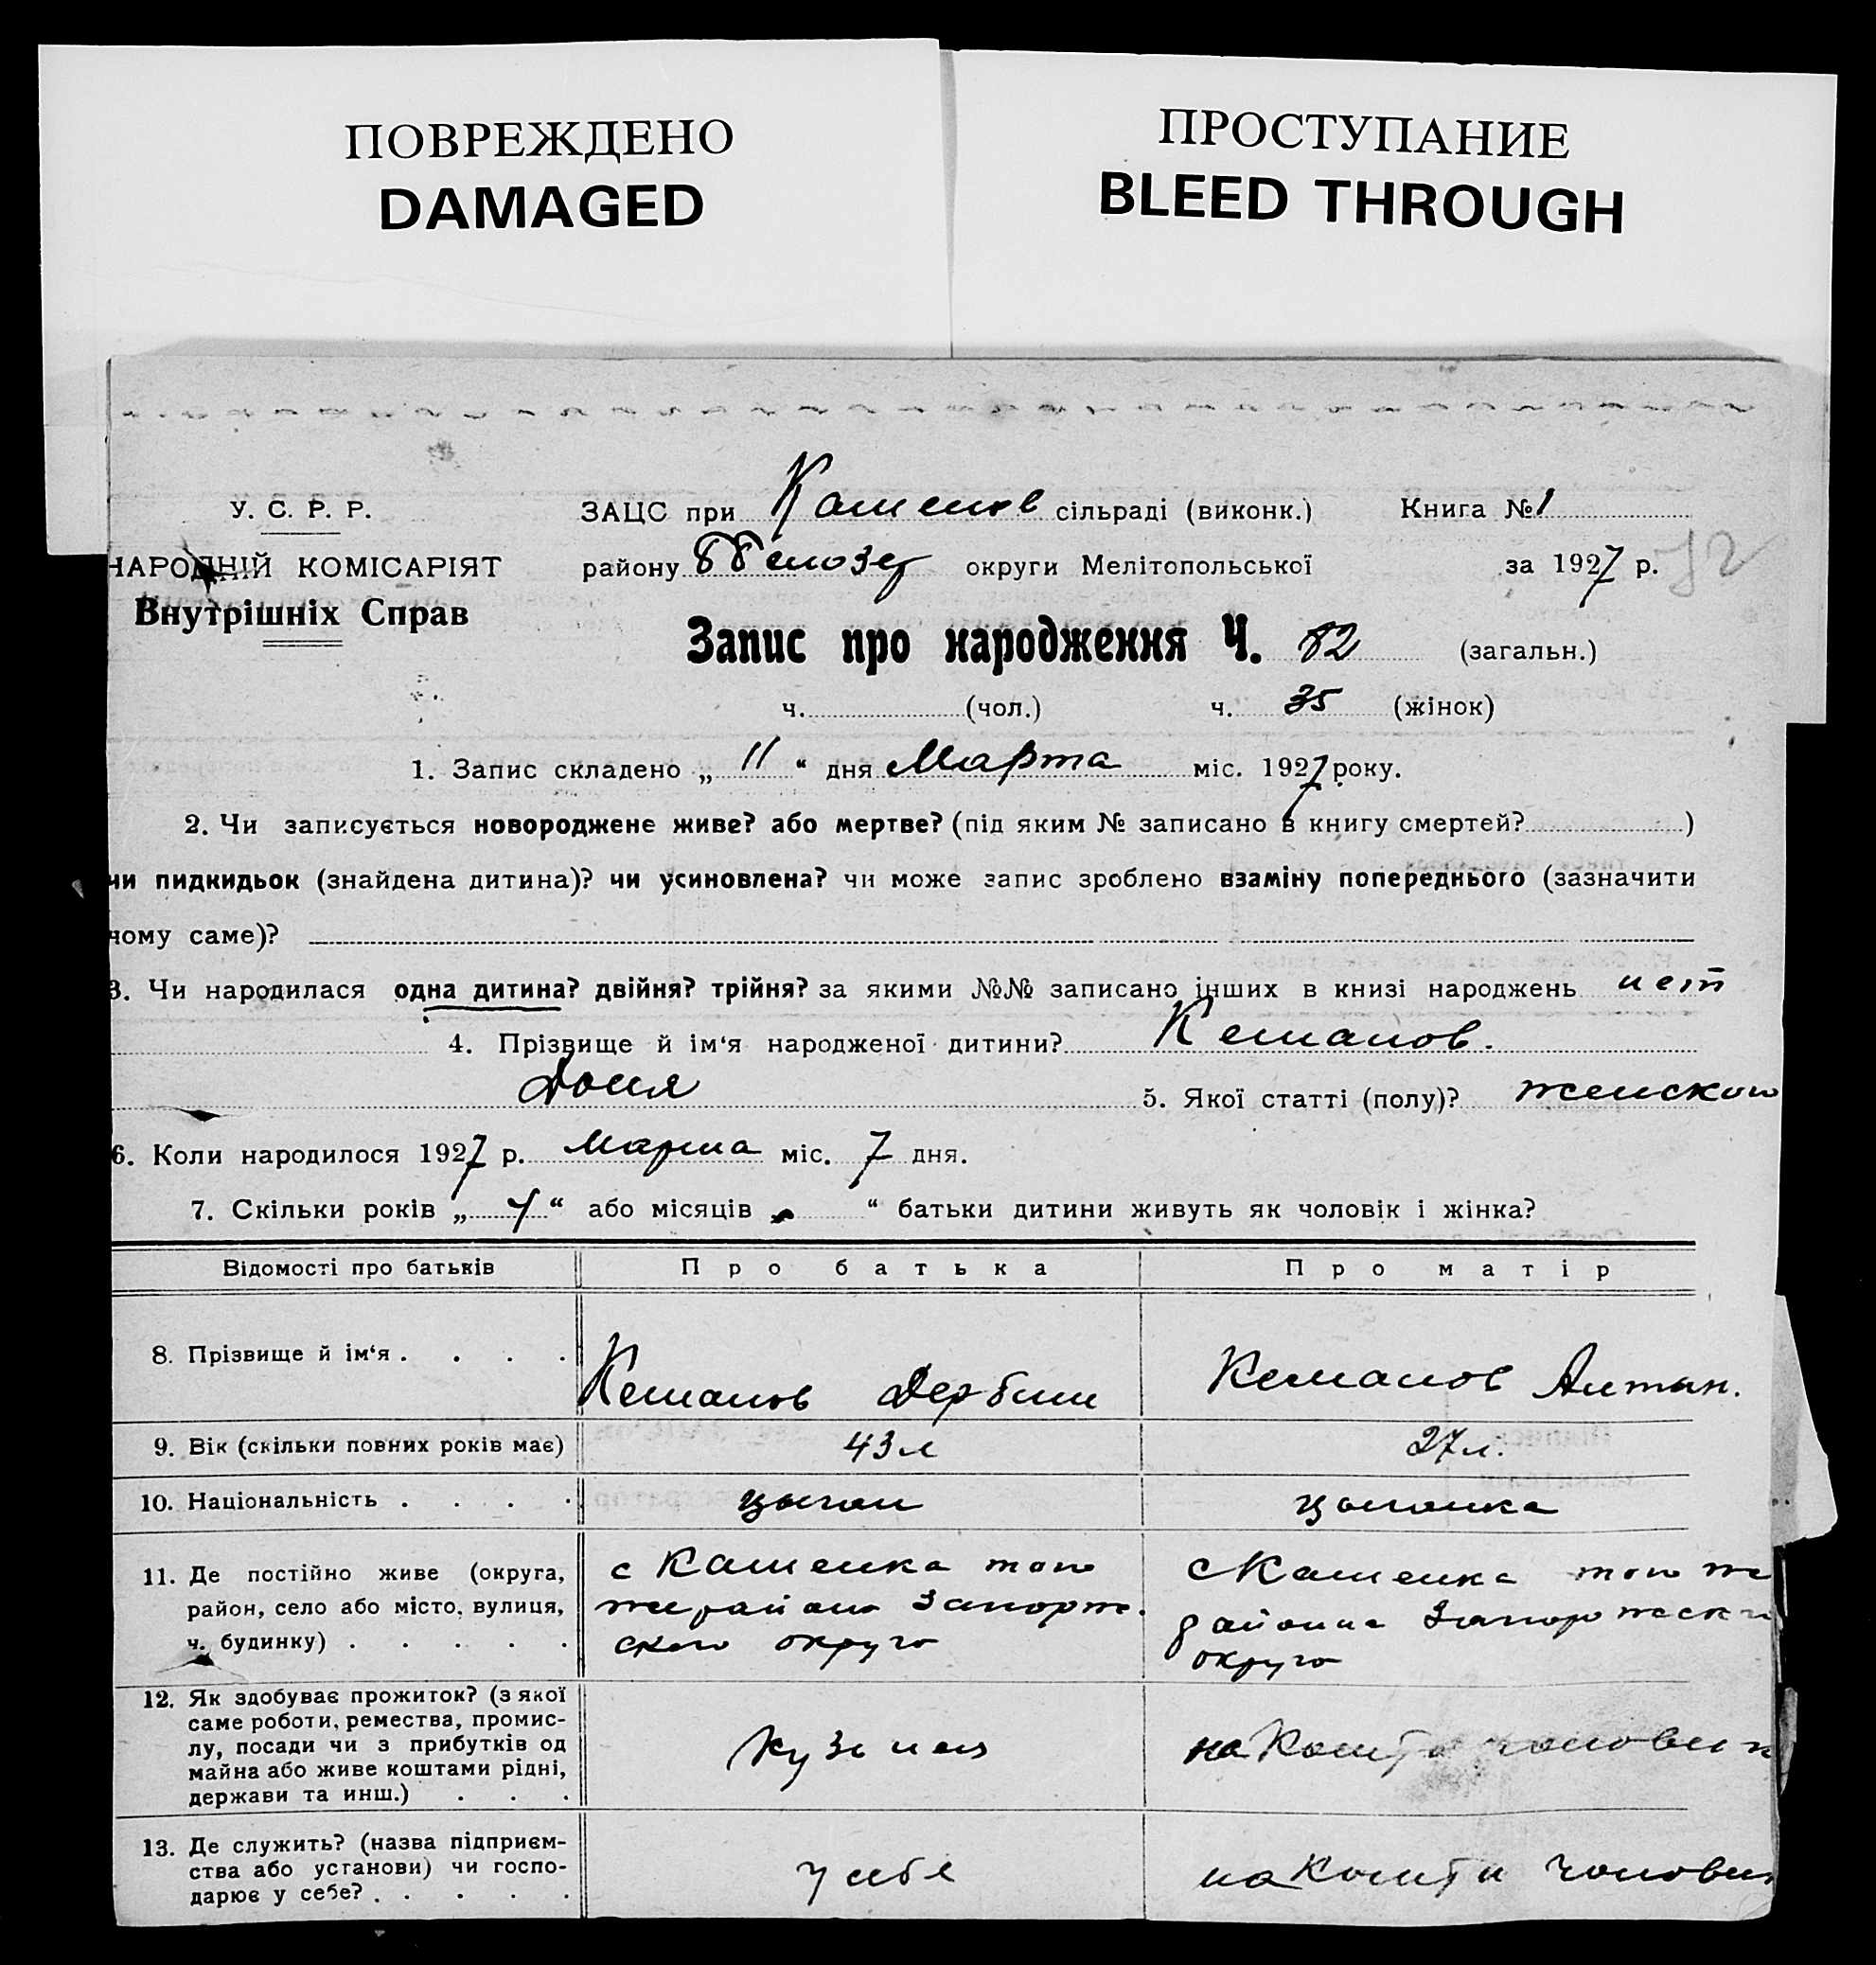 ПОВРЕЖДЕНО
DAMAGED
ПРОСТУПАНИЕ
BLEED THROUGH
У. С. Р. Р.
НАРОДНІЙ КОМІСАРІЯТ
Внутрішніх Справ
ЗАЦС при Каменов сільраді (виконк.) Книга № 1
району Белозер округи Мелітопольської за 1927 р.
Запис про народження Ч. 82 (загальн.)
ч. (чол.) ч. 35 (жінок)
1. Запис складено „ 11 “ дня Марта міс. 1927 року.
2. Чи записується новороджене живе? або мертве? (під яким № записано в книгу смертей? )
чи пидкидьок (знайдена дитина)? чи усиновлена? чи може запис зроблено взаміну попереднього (зазначити
чому саме)?
3. Чи народилася одна дитина? двійня? трійня? за якими №№ записано інших в книзі народжень нет
4. Прізвище й ім‘я народженої дитини? Кеманов.
Доня 5. Якої статті (полу)? женского
6. Коли народилося 1927 р. марта міс. 7 дня.
7. Скільки років „ “ або місяців „ “ батьки дитини живуть як чоловік і жінка?
Відомості про батьків Про батька Про матір
8. Прізвище й ім‘я . . . . Кеманов Кеманов
9. Вік (скільки повних років має) 43 л 27 л.
10. Національність . . . . цыган цыганка
11. Де постійно живе (округа,
район, село або місто, вулиця,
ч. будинку) . . . . .
с Каменка того
же района Запорож.
ского округа
с Каменка того же
района Запорожски
округа
12. Як здобуває прожиток? (з якої
саме роботи, ремества, промис-
лу, посади чи з прибутків од
майна або живе коштами рідні,
держави та инш.) . . .
на кошти
13. Де служить? (назва підприєм-
ства або установи) чи госпо-
дарює у себе? . . . . .
у себя
на кошти чоловик